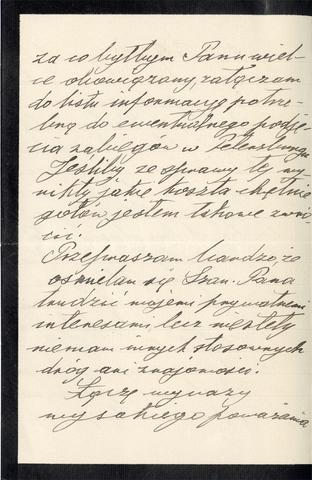 za co byłbym Panu wiel-
ce obowiązany, załączam
do listu informacyę potrze-
bną do ewentualnego podję-
cia zabiegów w Petersburgu
Jeśliby ze sprawy tej wy-
nikły jakie koszta chętnie
gotów jestem takowe zwró-
cić.
Przepraszam bardzo, że
ośmielam się Szan. Pana
trudzić mojemi prywatnemi
interesami lecz niestety
niemam innych stosownych
dróg ani znajomości.
Łączę wyrazy
wysokiego poważania